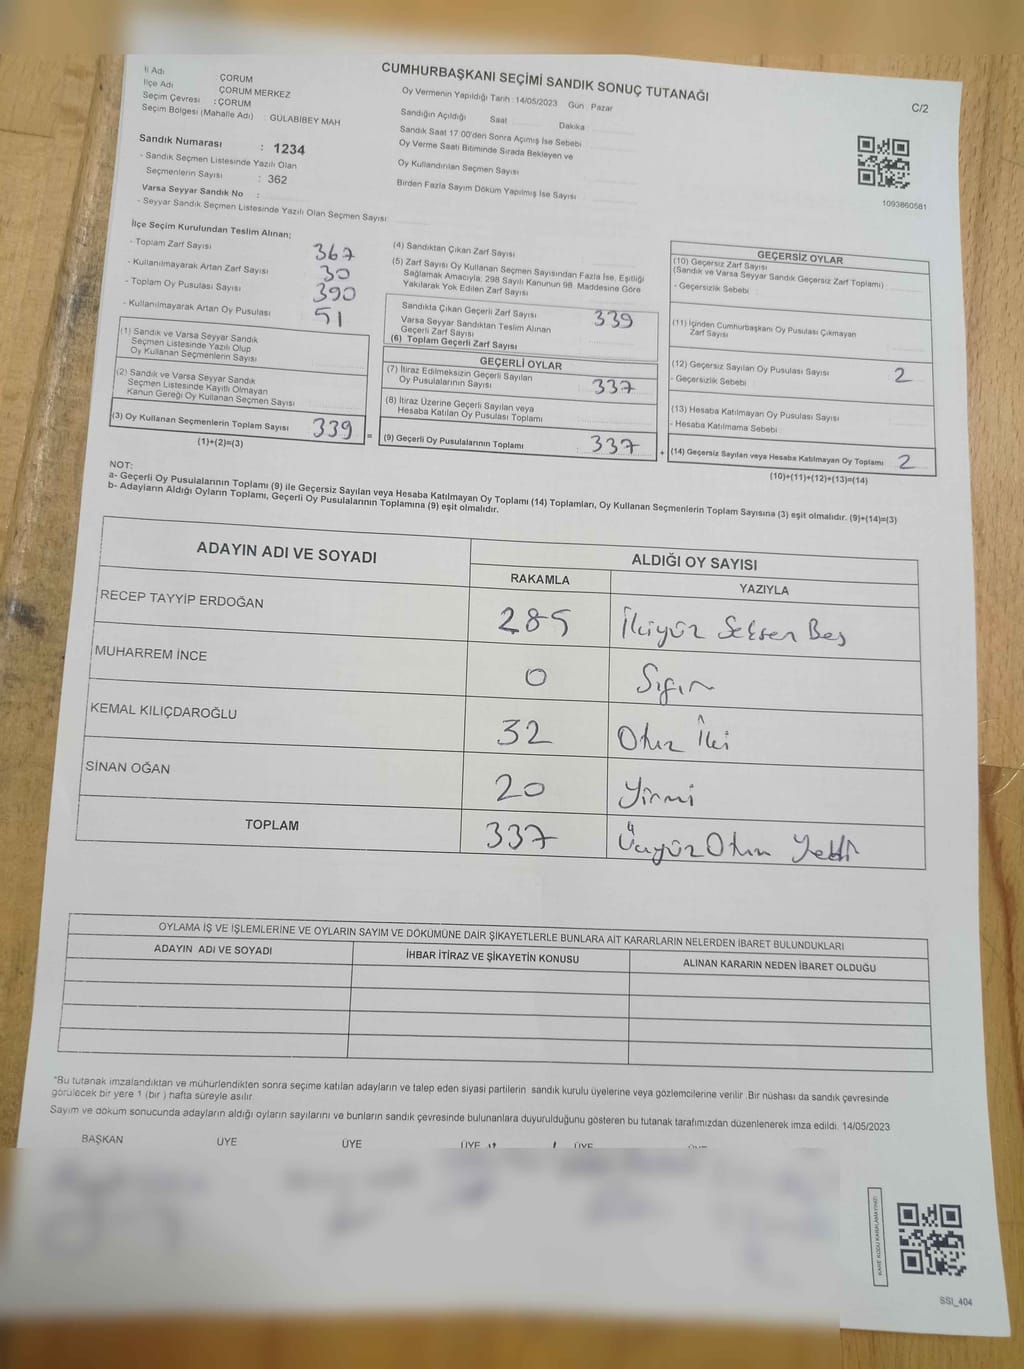 CUMHURBAŞKANI SEÇİMİ SANDIK SONUÇ TUTANAĞI
C/2
İl Adı ÇORUM
İlçe Adı ÇORUM MERKEZ
Seçim Çevresi : ÇORUM
Seçim Bölgesi (Mahalle Adı) : GÜLABİBEY MAH
Sandık Numarası : 1234
- Sandık Seçmen Listesinde Yazılı Olan
Seçmenlerin Sayısı : 362
Varsa Seyyar Sandık No :
- Seyyar Sandık Seçmen Listesinde Yazılı Olan Seçmen Sayısı:
Oy Vermenin Yapıldığı Tarih : 14/05/2023 Gün : Pazar
Sandığın Açıldığı Saat Dakika :
Sandık Saat 17.00'den Sonra Açımış İse Sebebi
Oy Verme Saati Bitiminde Sırada Bekleyen ve
Oy Kullandırılan Seçmen Sayısı
Birden Fazla Sayım Döküm Yapılmış İse Sayısı
1093860581
İlçe Seçim Kurulundan Teslim Alınan;
- Toplam Zarf Sayısı 367
- Kullanılmayarak Artan Zarf Sayısı 30
- Toplam Oy Pusulası Sayısı 390
- Kullanılmayarak Artan Oy Pusulası 51
(1) Sandık ve Varsa Seyyar Sandık
Seçmen Listesinde Yazılı Olup
Oy Kullanan Seçmenlerin Sayısı
(2) Sandık ve Varsa Seyyar Sandık
Seçmen Listesinde Kayıtlı Olmayan
Kanun Gereği Oy Kullanan Seçmen Sayısı
(3) Oy Kullanan Seçmenlerin Toplam Sayısı 339 =
(1)+(2)=(3)
(4) Sandıktan Çıkan Zarf Sayısı
(5) Zarf Sayısı Oy Kullanan Seçmen Sayısından Fazla İse, Eşitliği
Sağlamak Amacıyla; 298 Sayılı Kanunun 98. Maddesine Göre
Yakılarak Yok Edilen Zarf Sayısı
Sandıkta Çıkan Geçerli Zarf Sayısı 339
Varsa Seyyar Sandıktan Teslim Alınan
Geçerli Zarf Sayısı
(6) Toplam Geçerli Zarf Sayısı
GEÇERLİ OYLAR
(7) İtiraz Edilmeksizin Geçerli Sayılan
Oy Pusulalarının Sayısı 337
(8) İtiraz Üzerine Geçerli Sayılan veya
Hesaba Katılan Oy Pusulası Toplamı
(9) Geçerli Oy Pusulalarının Toplamı 337 +
GEÇERSİZ OYLAR
(10) Geçersiz Zarf Sayısı
(Sandık ve Varsa Seyyar Sandık Geçersiz Zarf Toplamı)
- Geçersizlik Sebebi :
(11) İçinden Cumhurbaşkanı Oy Pusulası Çıkmayan
Zarf Sayısı
(12) Geçersiz Sayılan Oy Pusulası Sayısı 2
- Geçersizlik Sebebi
(13) Hesaba Katılmayan Oy Pusulası Sayısı
- Hesaba Katılmama Sebebi
(14) Geçersiz Sayılan veya Hesaba Katılmayan Oy Toplamı 2
(10)+(11)+(12)+(13)=(14)
NOT:
a- Geçerli Oy Pusulalarının Toplamı (9) ile Geçersiz Sayılan veya Hesaba Katılmayan Oy Toplamı (14) Toplamları, Oy Kullanan Seçmenlerin Toplam Sayısına (3) eşit olmalıdır. (9)+(14)=(3)
b- Adayların Aldığı Oyların Toplamı, Geçerli Oy Pusulalarının Toplamına (9) eşit olmalıdır.
ADAYIN ADI VE SOYADI ALDIĞI OY SAYISI
RAKAMLA YAZIYLA
RECEP TAYYİP ERDOĞAN 285 İkiyüz Seksen Beş
MUHARREM İNCE 0 Sıfır
KEMAL KILIÇDAROĞLU 32 Otuz İki
SİNAN OĞAN 20 Yirmi
TOPLAM 337 Üçyüz Otuz Yedi
OYLAMA İŞ VE İŞLEMLERİNE VE OYLARIN SAYIM VE DÖKÜMÜNE DAİR ŞİKAYETLERLE BUNLARA AİT KARARLARIN NELERDEN İBARET BULUNDUKLARI
ADAYIN ADI VE SOYADI İHBAR İTİRAZ VE ŞİKAYETİN KONUSU ALINAN KARARIN NEDEN İBARET OLDUĞU
*Bu tutanak imzalandıktan ve mühürlendikten sonra seçime katılan adayların ve talep eden siyasi partilerin sandık kurulu üyelerine veya gözlemcilerine verilir .Bir nüshası da sandık çevresinde
görülecek bir yere 1 (bir ) hafta süreyle asılır.
Sayım ve döküm sonucunda adayların aldığı oyların sayılarını ve bunların sandık çevresinde bulunanlara duyurulduğunu gösteren bu tutanak tarafımızdan düzenlenerek imza edildi. 14/05/2023
BAŞKAN ÜYE ÜYE ÜYE ÜYE
SSI_404